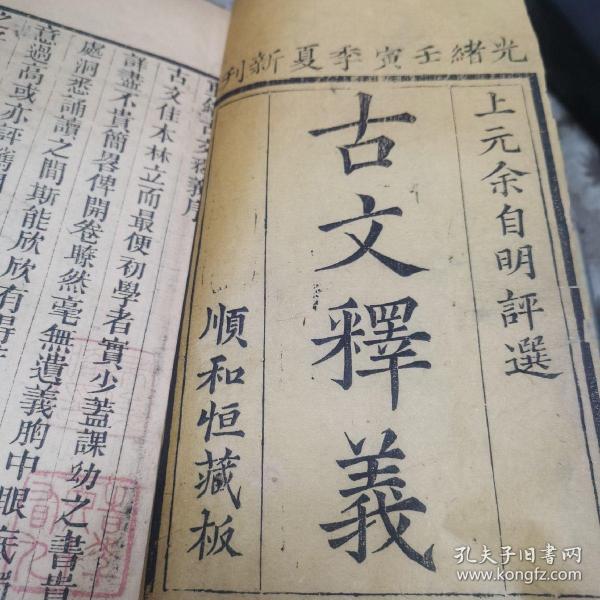 光緒壬寅季夏新刊
上元余自明評選
古文釋義
順和恒藏板
古文佳本林立而最便初學者實少蓋課幼之書貴
詳盡不貴簡畧俾開卷瞭然毫無遺義胸中眼底
處洞悉誦讀之間斯能欣欣有得
意過高或亦評
孔夫子旧书网
www.kongfz.com